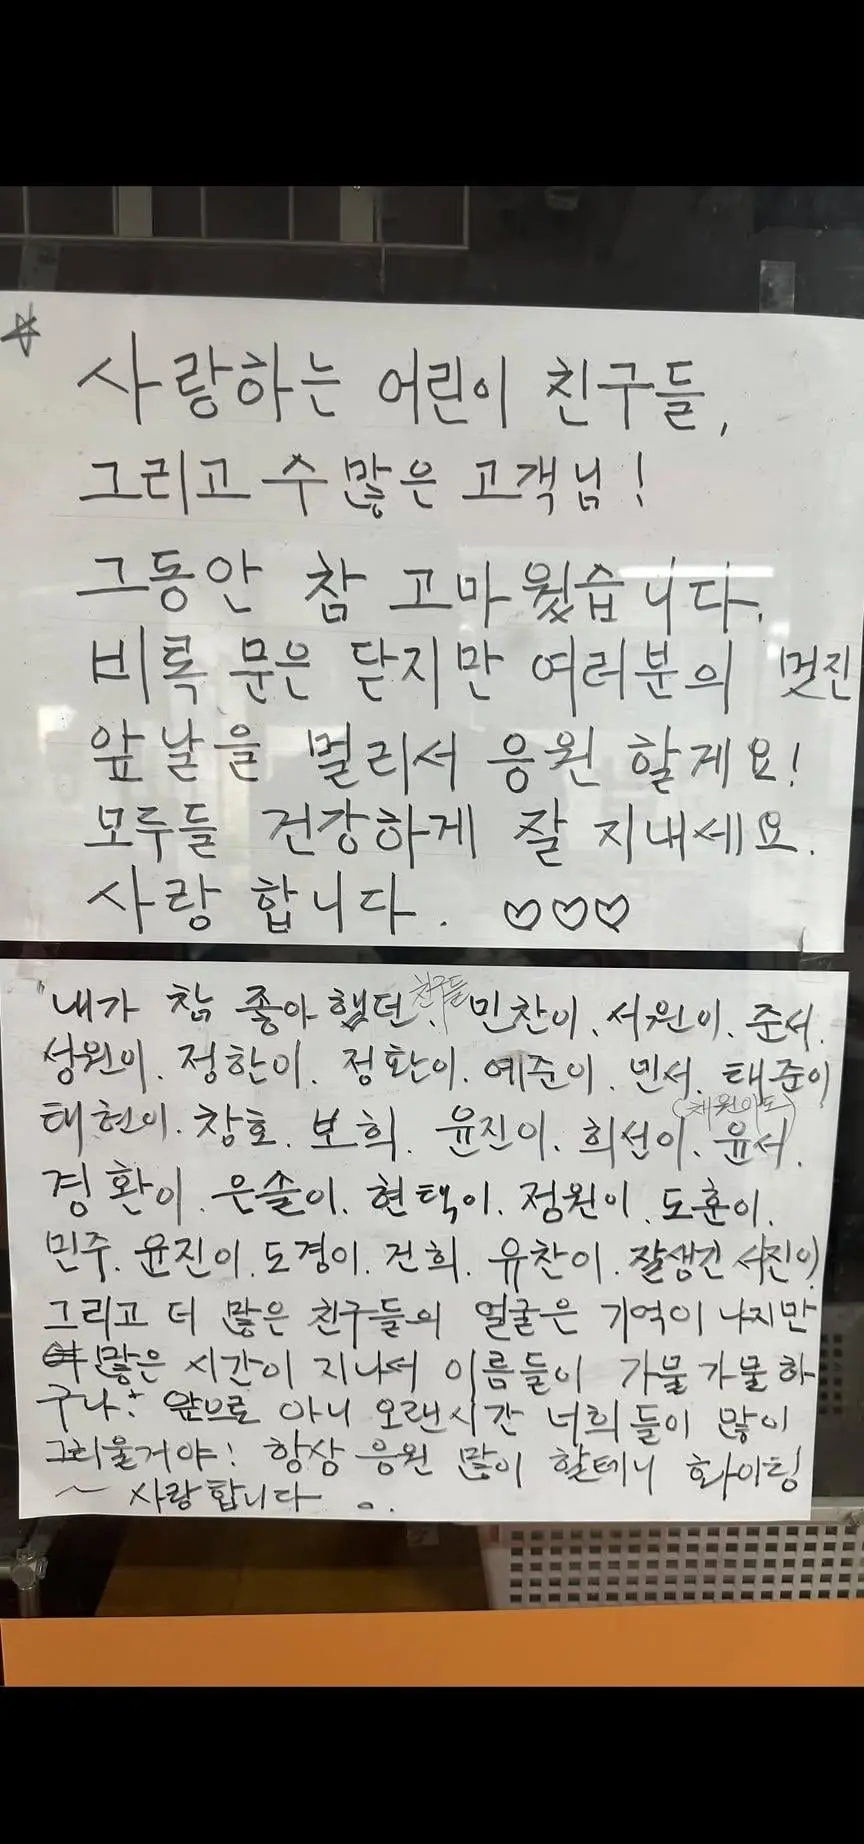 사랑하는 어린이 친구들,
그리고 수 많은 고객님!
그동안 참 고마웠습니다.
비록 문은 닫지만 여러분의 멋진
앞날을 멀리서 응원 할게요!
모두들 건강하게 잘 지내세요.
사랑 합니다. ♡♡♡
"내가 참 좋아했던 친구들, 민찬이. 서원이. 준서.
성원이. 정한이. 정환이. 예준이. 민서. 태준이
태현이. 창호. 보희. 윤진이. 희선이. 윤서.
(채원이도)
경환이. 은솔이. 현택이. 정원이. 도훈이.
민주. 윤진이. 도경이. 건희. 유찬이. 잘생긴 서진이)
그리고 더 많은 친구들의 얼굴은 기억이 나지만
많은 시간이 지나서 이름들이 가물가물하
구나! 앞으로 아니 오랜시간 너희들이 많이
그리울거야! 항상 응원 많이 할테니 화이팅
~ 사랑합니다 ..